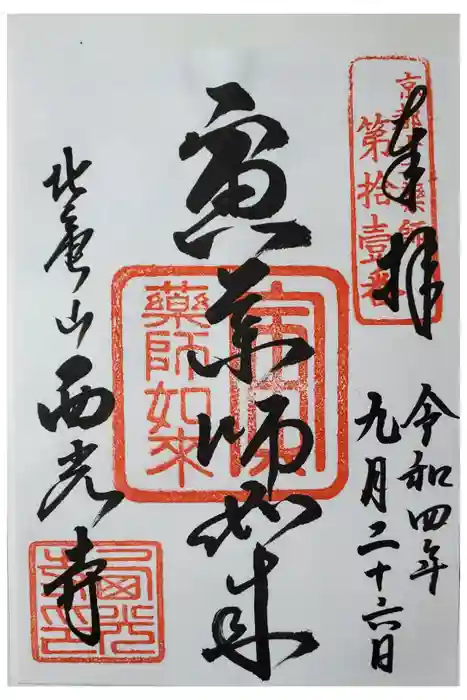 奉拝
京都十二薬師
第拾壹番
令和四年
九月二十六日
寅薬師如来
藥師如來
北亀山
西光寺